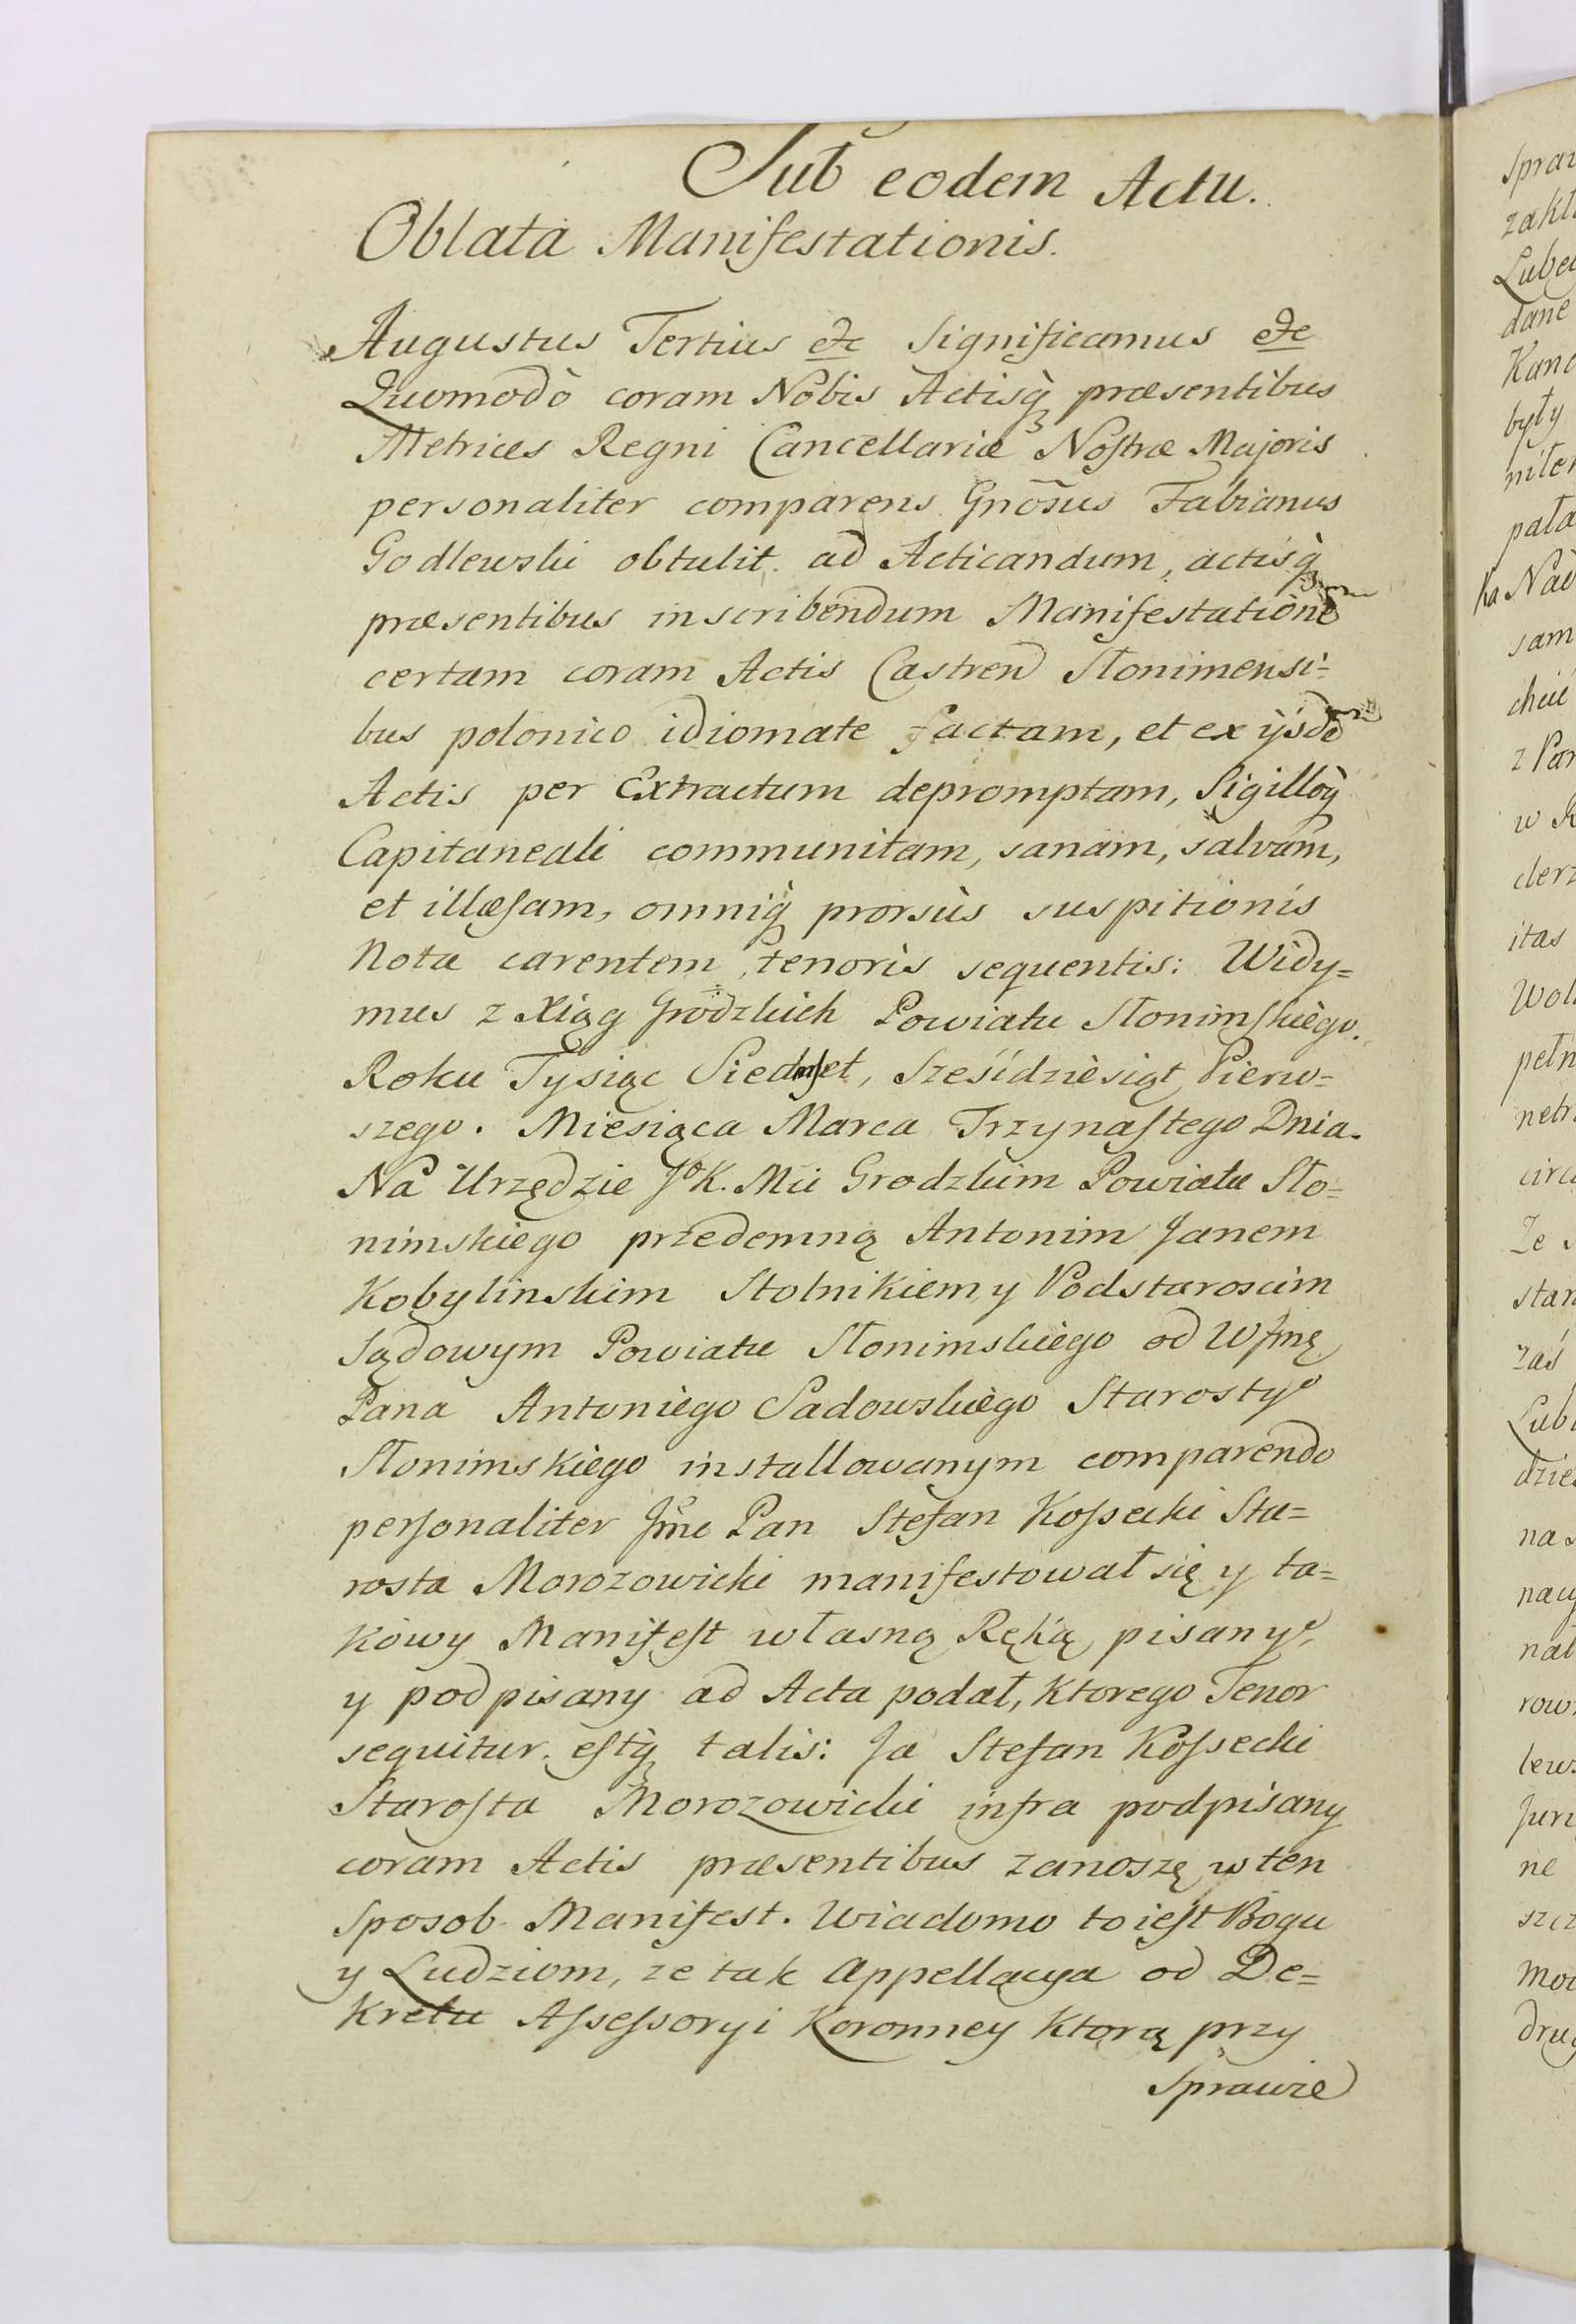 Sub eodem Actu.
Oblata Manifestationis.
Augustus Tertius etc Significamus etc
Quomodò coram Nobis Actisq̀ præsentibus
Metrices Regni Cancellariæ Nostræ Majoris
personaliter comparens Gnõsus Fabianus
Godlewski obtulit ad Acticandum, actisq̀
præsentibus inscribendum Manifestationẽ
certam coram Actis Castren Słonimensi=
bus polonico idiomate factam, et ex ijsdẽ
Actis per Extractum depromptam, Sigilloq̀
Capitaneali communitam, sanam, salvam,
et illæsam, omniq̀ prorsùs suspitionis
Nota carentem, tenoris sequentis: Widy=
mus z Xiąg Grodzkich Powiatu Słonimskiego.
Roku Tysiąc Siedmset, Sześćdziesiąt Pierw=
szego. Miesiąca Marca Trzynastego Dnia.
Na Urzędzie Jo K. Mci Grodzkim Powiatu Sło=
nimskiego przedemną Antonim Janem
Kobylinskim Stolnikiem y Podstaroscim
Sądowym Powiatu Słonimskiego od W Jmę
Pana Antoniego Sadowskiego Starosty
Słonimskiego installowanym comparendo
personaliter Jmc Pan Stefan Kossecki Sta=
rosta Morozowicki manifestował się y ta=
kowy Manifest własną Ręką pisany,
y podpisany ad Acta podał, ktorego Tenor
sequitur estq̀ talis: Ja Stefan Kossecki
Starosta Morozowicki infra podpisany
coram Actis præsentibus zanoszę w ten
Sposob Manifest. Wiadomo to iest Bogu
y Ludziom, ze tak Appellacya od De=
kretu Assessoryi Koronney ktorą przy
Sprawie